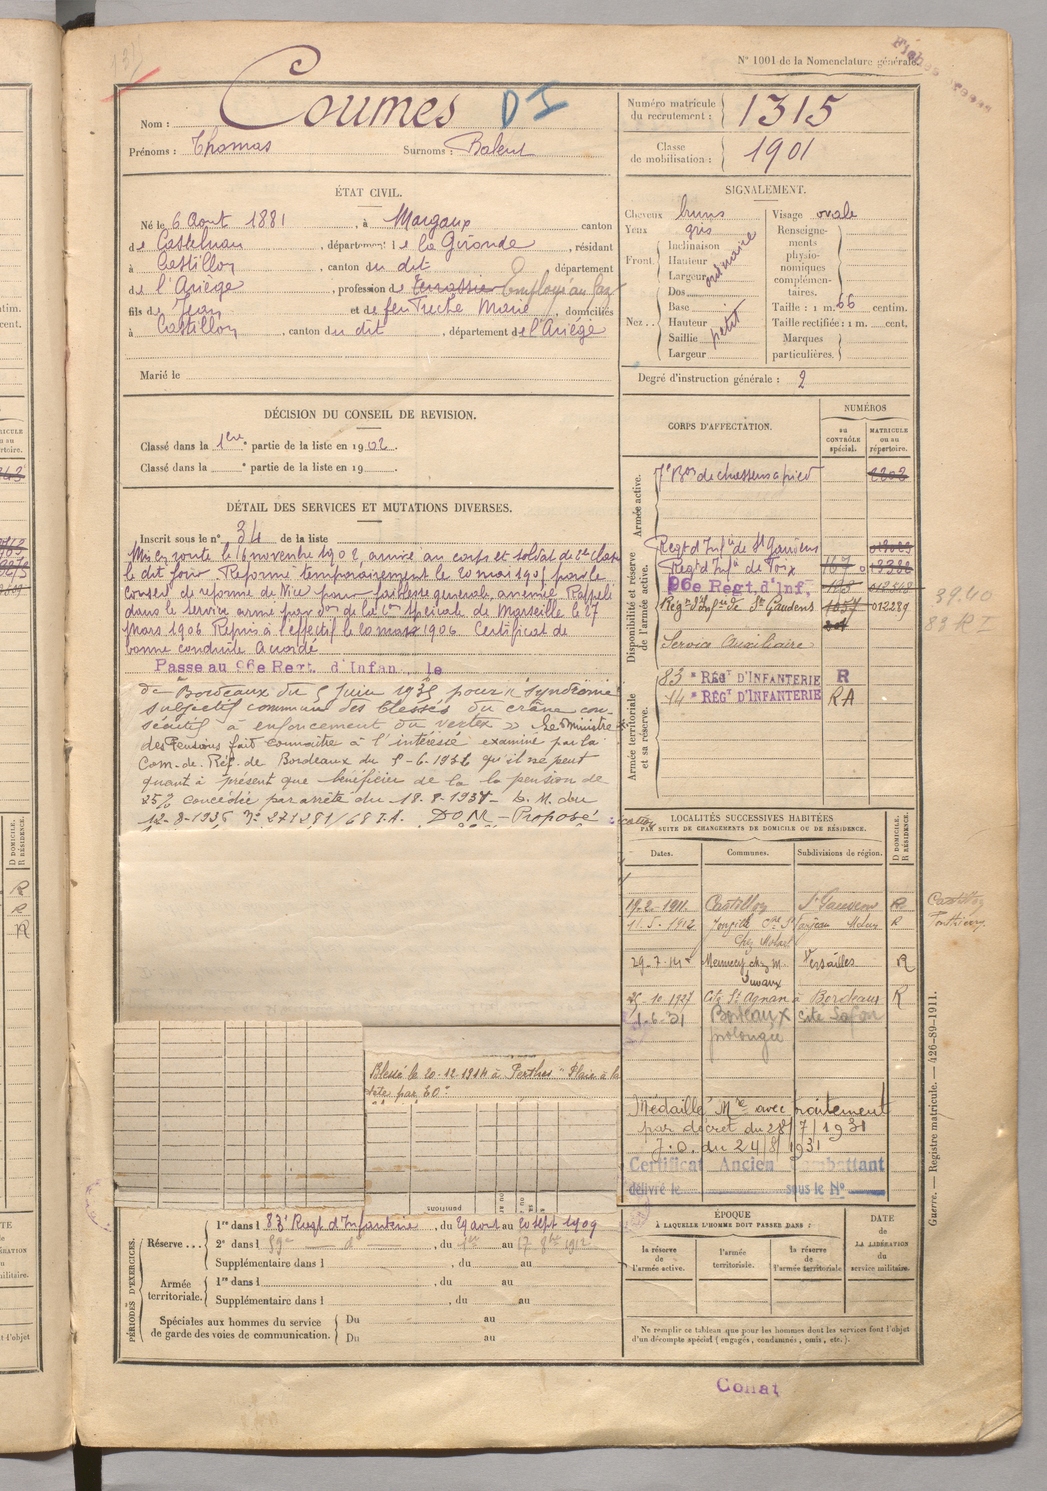 N° 1001 de la Nomenclature générale.
Nom : Coumes D I
Prénoms : Thomas Surnoms : Balent
Numéro matricule du recrutement : 1315
Classe de mobilisation : 1901
ÉTAT CIVIL.
Né le 6 Aout 1881, à Margaux canton
de Castelnau, département de la Gironde, résidant
à Castillon, canton du dit département
de l'Ariège, profession de Terrassier Employé au Gaz
fils de Jean et de feu Treche Marie, domiciliés
à Castillon, canton du dit, département de l'Ariège
Marié le
SIGNALEMENT.
Cheveux bruns
Yeux gris
Front. Inclinaison Hauteur Largeur ordinaire
Nez.. Dos Base Hauteur Saillie Largeur petit
Visage ovale
Renseignements physionomiques complémentaires.
Taille : 1 m. 66 centim.
Taille rectifiée : 1 m. cent.
Marques particulières.
Degré d'instruction générale : 2
DÉCISION DU CONSEIL DE REVISION.
Classé dans la 1ere partie de la liste en 1902.
Classé dans la e partie de la liste en 19 .
DÉTAIL DES SERVICES ET MUTATIONS DIVERSES.
Inscrit sous le n° 34 de la liste
Mis en route le 16 novembre 1902, arrivé au corps et soldat de 2e classe
le dit jour. Réformé temporairement le 20 mai 1905 par le
Conseil de réforme de Nice pour faiblesse generale, anemie. Rappelé
dans le service armé par don de la Con Spéciale de Marseille le 27
mars 1906 Repris à l'effectif le 20 mars 1906 Certificat de
bonne conduite Accordé
Passé au 96e Regt. d'Infan le
de Bordeaux du 5 Juin 1935 pour "Syndrome
subjectif commun des blessés du crâne con-
sécutif à enfoncement du vertex » Le Ministre
des Pensions fait connaitre à l'intéressé examiné par la
Com. de Réf. de Bordeaux du qu'il ne peut
quant à présent que bénéficier de la la pension de
25% concédée par arrêté du
DOM - Proposé
Blessé le 20-12-1914 à Perthes "Plaie à la
tête par
CORPS D'AFFECTATION.
NUMÉROS
au CONTRÔLE spécial.
MATRICULE ou au répertoire.
Armée active.
7e Bon de chasseurs à pied
Disponibilité et réserve de l'armée active.
Regt d'Infie de St Gaudens
Regt d'Infie de Foix
96e Regt. d'Inf.
Regt d'Infie de St Gaudens 1057 013289
Service Auxiliaire
Armée territoriale et sa réserve.
83e RÉGt D'INFANTERIE R
14e RÉGt D'INFANTERIE RA
39.40
83 R I
LOCALITÉS SUCCESSIVES HABITÉES
PAR SUITE DE CHANGEMENTS DE DOMICILE OU DE RÉSIDENCE.
Dates. Communes. Subdivisions de région. D DOMICILE. R RÉSIDENCE.
19.2.1911. Castillon St Gaudens R
11.5.1912 Melun R
29-7-14 Mennecy chez M. Versailles R
25-10-1927 Cité St Agnan à Bordeaux R
1-6-31 Bordeaux cité Lafon
prolongée
Médaille Mre avec traitement
par décret du 28/7/1931
J.O. du 24/8/1931
Certificat Ancien Combattant
délivré le sous le N°
PÉRIODES D'EXERCICES.
Réserve... 1re dans l 83e Regt d'Infanterie, du 29 aout au 20 sept 1909
2e dans l 59e — do —, du 1er au 17 8bre 1912
Supplémentaire dans l , du au
Armée territoriale. 1re dans l , du au
Supplémentaire dans l , du au
Spéciales aux hommes du service de garde des voies de communication. Du au
Du au
ÉPOQUE
À LAQUELLE L'HOMME DOIT PASSER DANS :
la réserve de l'armée active.
l'armée territoriale.
la réserve de l'armée territoriale
DATE de LA LIBÉRATION du service militaire.
Ne remplir ce tableau que pour les hommes dont les services font l'objet
d'un décompte spécial (engagés, condamnés, omis, etc.).
Guerre. — Registre matricule. — 426-89-1911.